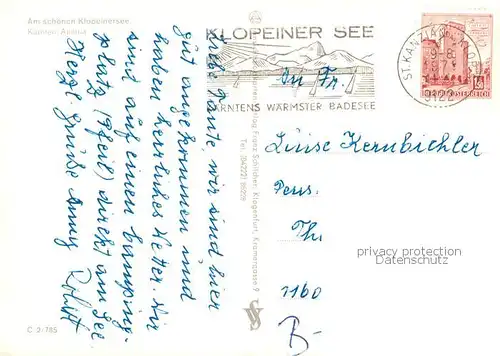 Am schönen Klopeinersee
Kärnten Austria
Liebe Tante, wir sind hier
gut angekommen und
haben herrliches Wetter. Wir
sind auf einen Camping-
platz (Pfeil) direkt am See
Herzl. Grüße Anny
C 2/785
Franz Schilcher, Klagenfurt, Kramergasse 9
Tel. (04222) 85229
KLOPEINER SEE
KÄRNTENS WÄRMSTER BADESEE
ST. KANZIAN
9122
REPUBLIK ÖSTERREICH
An Fr.
Luise Kernbichler
Pens.
Th.
1160
B-
privacy protection
Datenschutz